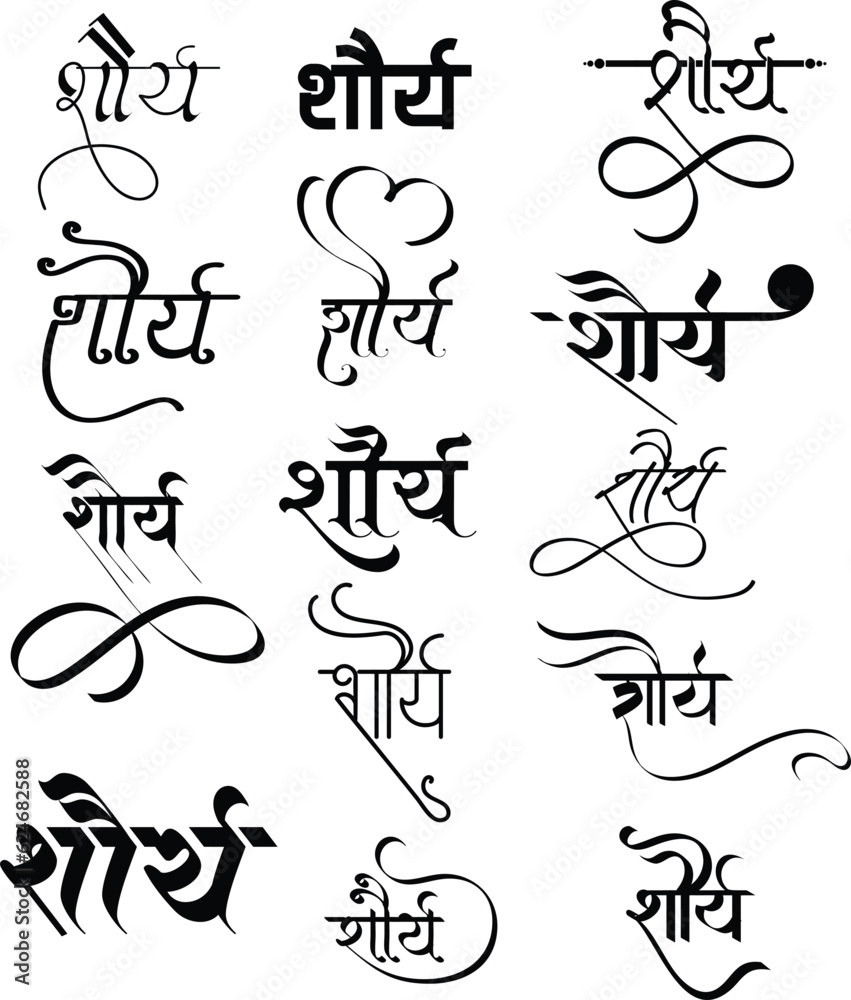 शौर्य शौर्य शौर्य
शौर्य शौर्य शौर्य
शौर्य शौर्य शौर्य
शौर्य शौर्य
शौर्य शौर्य शौर्य
Adobe Stock | #624682588